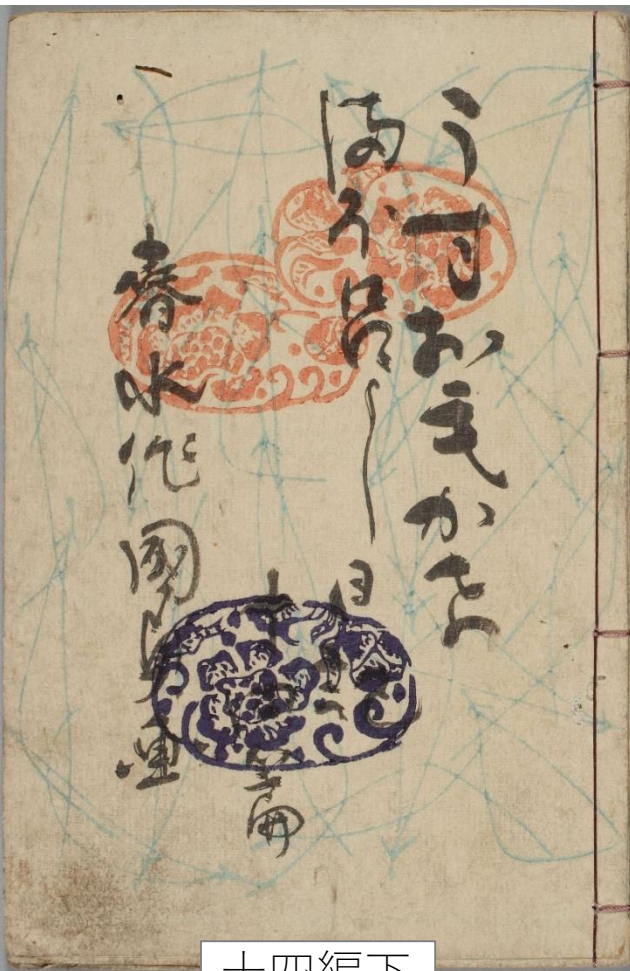 うすおもかげ
まぼろし日記
十四篇
春水作 國貞画
十四編下